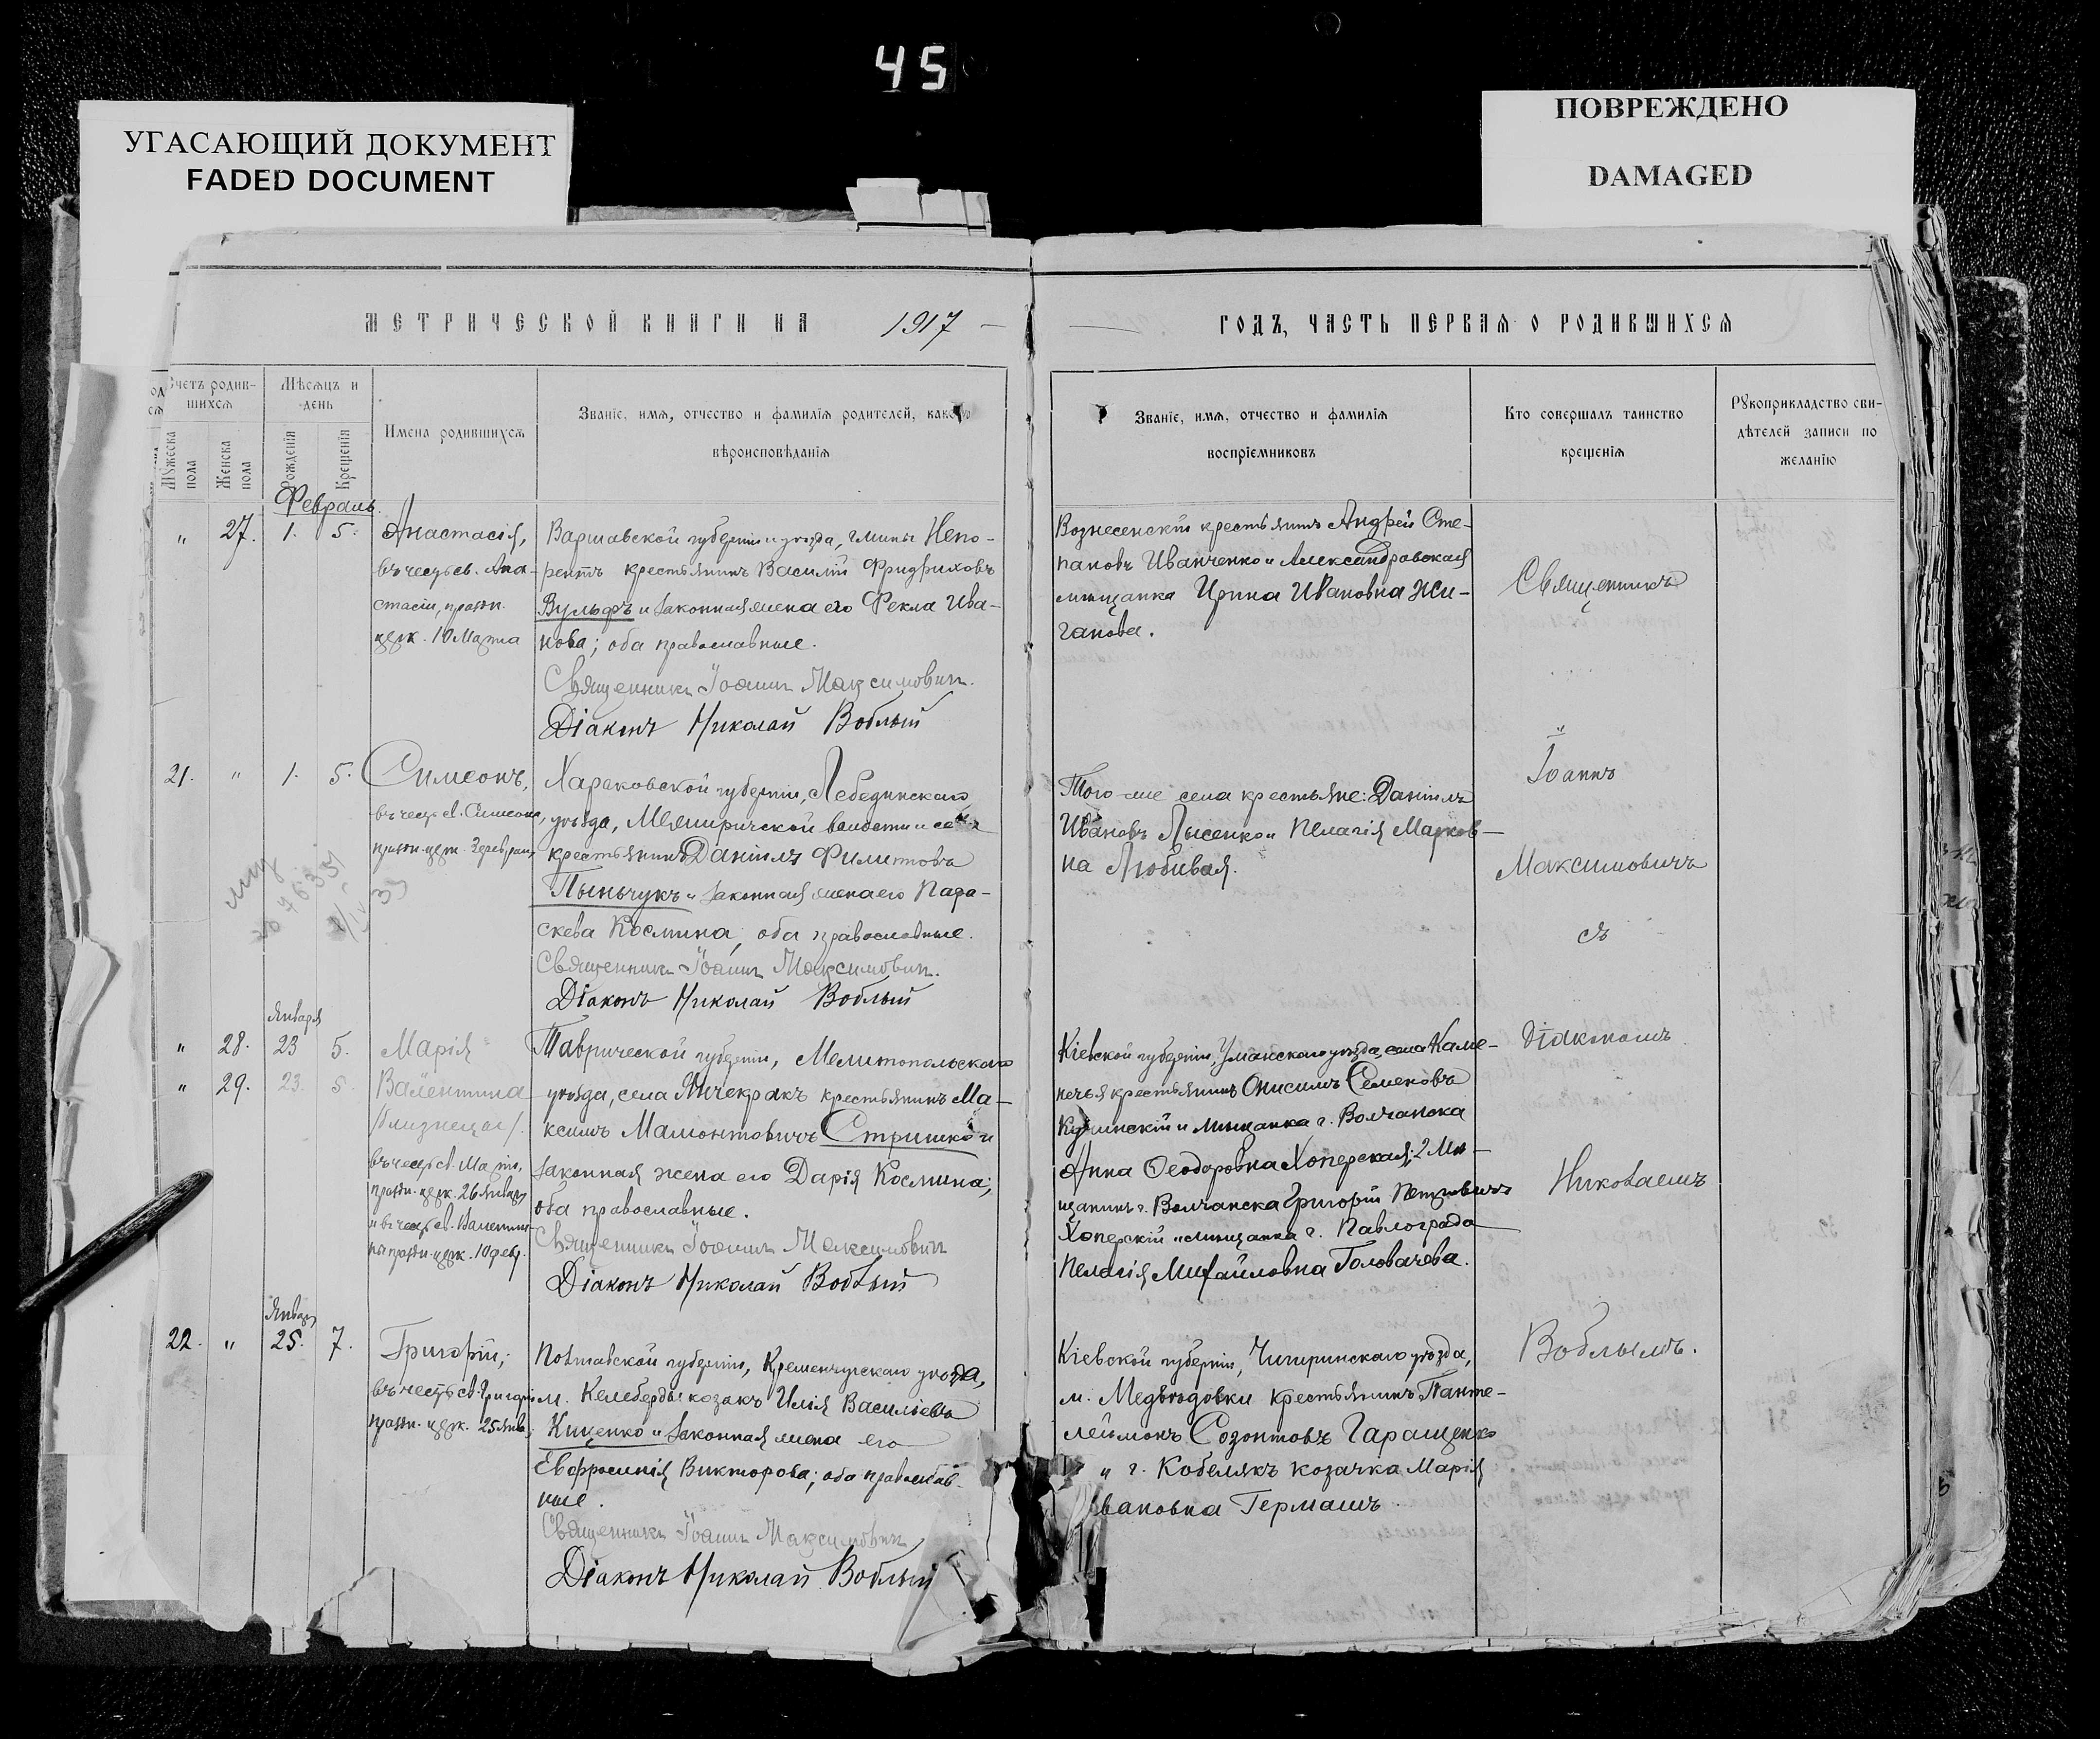 45
УГАСАЮЩИЙ ДОКУМЕНТ
FADED DOCUMENT
ПОВРЕЖДЕНО
DAMAGED
МЕТРИЧЕСКОЙ КНИГИ НА 1917
ГОДЪ, ЧАСТЬ ПЕРВАЯ О РОДИВШИХСЯ
Счетъ родив-
шихся
Мужеска пола
Женска пола
Мѣсяцъ и
день
Рожденія
Крещенія
Имена родившихся
Званіе, имя, отчество и фамилія родителей, какого
вѣроисповѣданія
Званіе, имя, отчество и фамилія
воспріемниковъ
Кто совершалъ таинство
крещенія
Рукоприкладство сви-
дѣтелей записи по
желанію
Февраль
" 27. 1. 5.
Анастасія,
въ честь св. Ана-
стасіи, праздн.
церк. 10 Марта
Варшавской губерніи и уѣзда, гмины Непо-
рентъ крестьянинъ Василій Фридриховъ
Вульфъ и законная жена его Фекла Ива-
нова; оба православные.
Священникъ Іоаннъ Максимовичъ.
Діаконъ Николай Воблый
Вознесенскій крестьянинъ Андрей Сте-
пановъ Иванченко и Александровская
мѣщанка Ирина Ивановна Жи-
ганова.
Священникъ
21. " 1. 5.
Симеонъ,
въ честь св. Симеона,
праздн. церк. 3 февраля
Харьковской губерніи, Лебединскаго
уѣзда, Межиричской волости и села
крестьянинъ Даніилъ Филиповъ
Пыньчукъ и законная жена его Пара-
скева Космина; оба православные.
Священникъ Іоаннъ Максимовичъ.
Діаконъ Николай Воблый
Того-же села крестьяне: Даніилъ
Ивановъ Лысенко и Пелагія Марков-
на Любивая.
Іоаннъ
Максимовичъ
съ
Января
" 28. 23 5.
" 29. 23. 5.
Марія
Валентина
/близнецы/.
въ честь св. Маріи,
праздн. церк. 26 Января
и въ честь св. Валенти-
ны праздн. церк. 10 фев.
Таврической губерніи, Мелитопольскаго
уѣзда, села Янчекракъ крестьянинъ Ма-
ксимъ Мамонтовичъ Стришко и
законная жена его Дарія Космина;
оба православные.
Священникъ Іоаннъ Максимовичъ
Діаконъ Николай Воблый
Кіевской губерніи, Уманскаго уѣзда, села Каме-
нечья крестьянинъ Онисимъ Семеновъ
и мѣщанка г. Волчанска
Анна Ѳеодоровна Хоперская; 2 Мѣ-
щанинъ г. Волчанска Григорій Петровичъ
Хоперскій и мѣщанка г. Павлограда
Пелагія Михайловна Головачева.
Діакономъ
Николаемъ
Января
22. " 25. 7.
Григорій,
въ честь св. Григорія
праздн. церк. 25 Янв.
Полтавской губерніи, Кременчугскаго уѣзда,
м. Келеберды козакъ Илія Васильевъ
Кищенко и законная жена его
Евфросинія Викторова; оба православ-
ные.
Священникъ Іоаннъ Максимовичъ
Діаконъ Николай Воблый
Кіевской губерніи, Чигиринскаго уѣзда,
м. Медвѣдовки крестьянинъ Панте-
леймонъ Созонтовъ Гаращенко
и г. Кобелякъ козачка Марія
Ивановна Гермашъ.
Воблымъ.